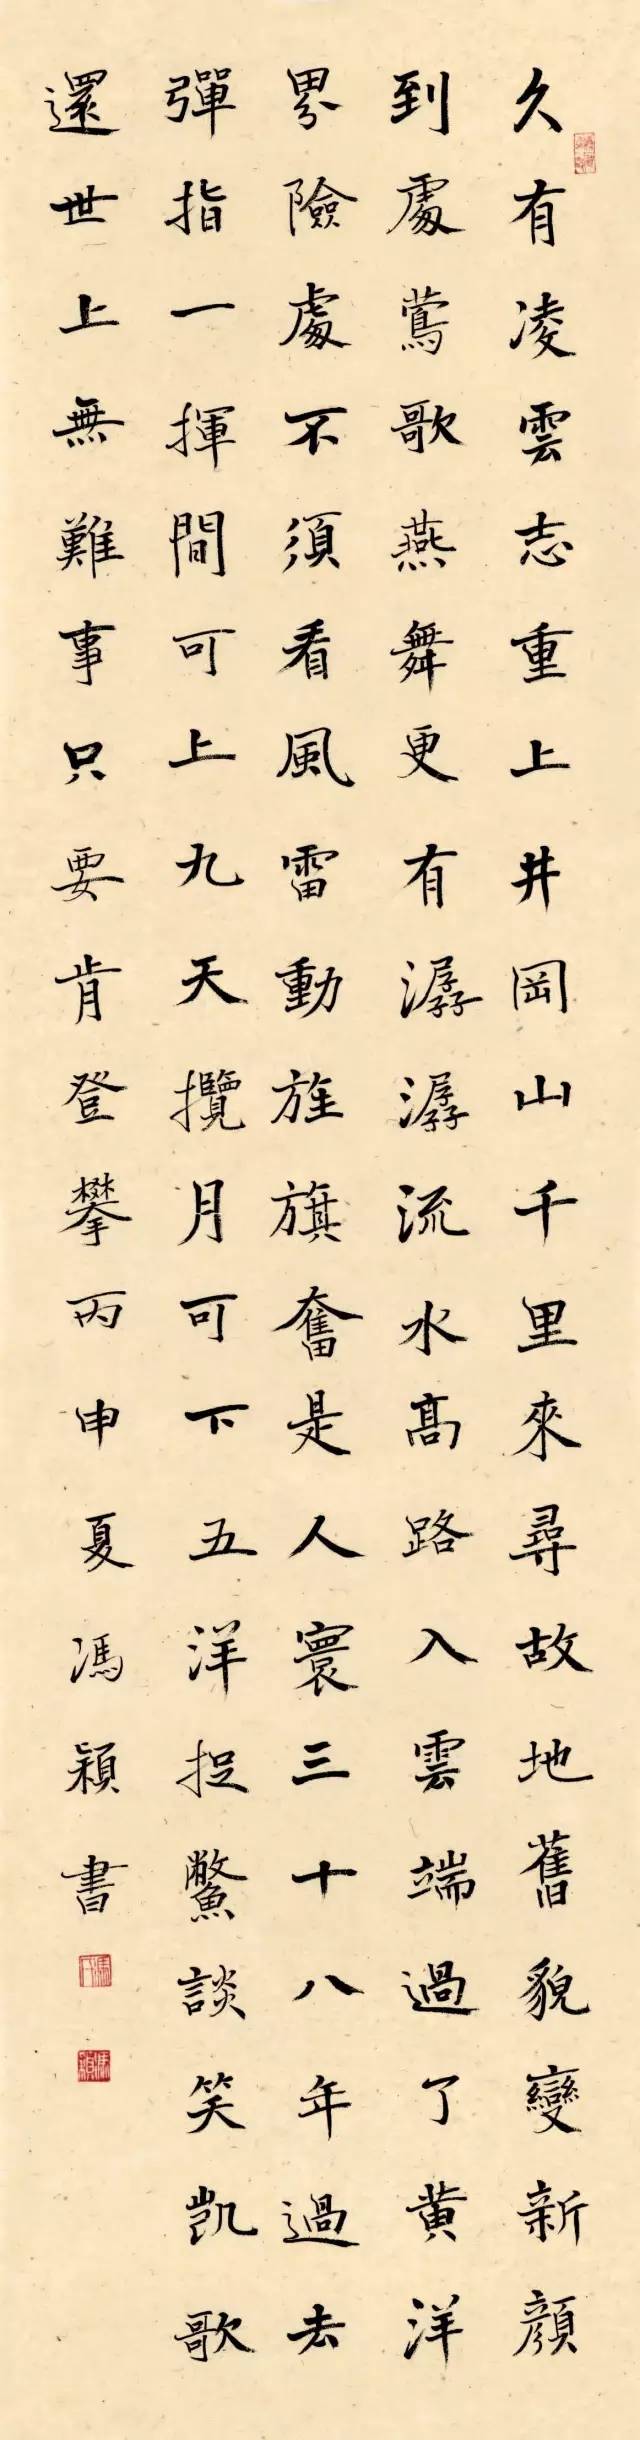 久有凌雲志重上井岡山千里來尋故地舊貌變新顔
到處鶯歌燕舞更有潺潺流水髙路入雲端過了黄洋
界險處不須看風雷動旌旗奮是人寰三十八年過去
彈指一揮間可上九天攬月可下五洋捉鱉談笑凱歌
還世上無難事只要肯登攀丙申夏馮穎書